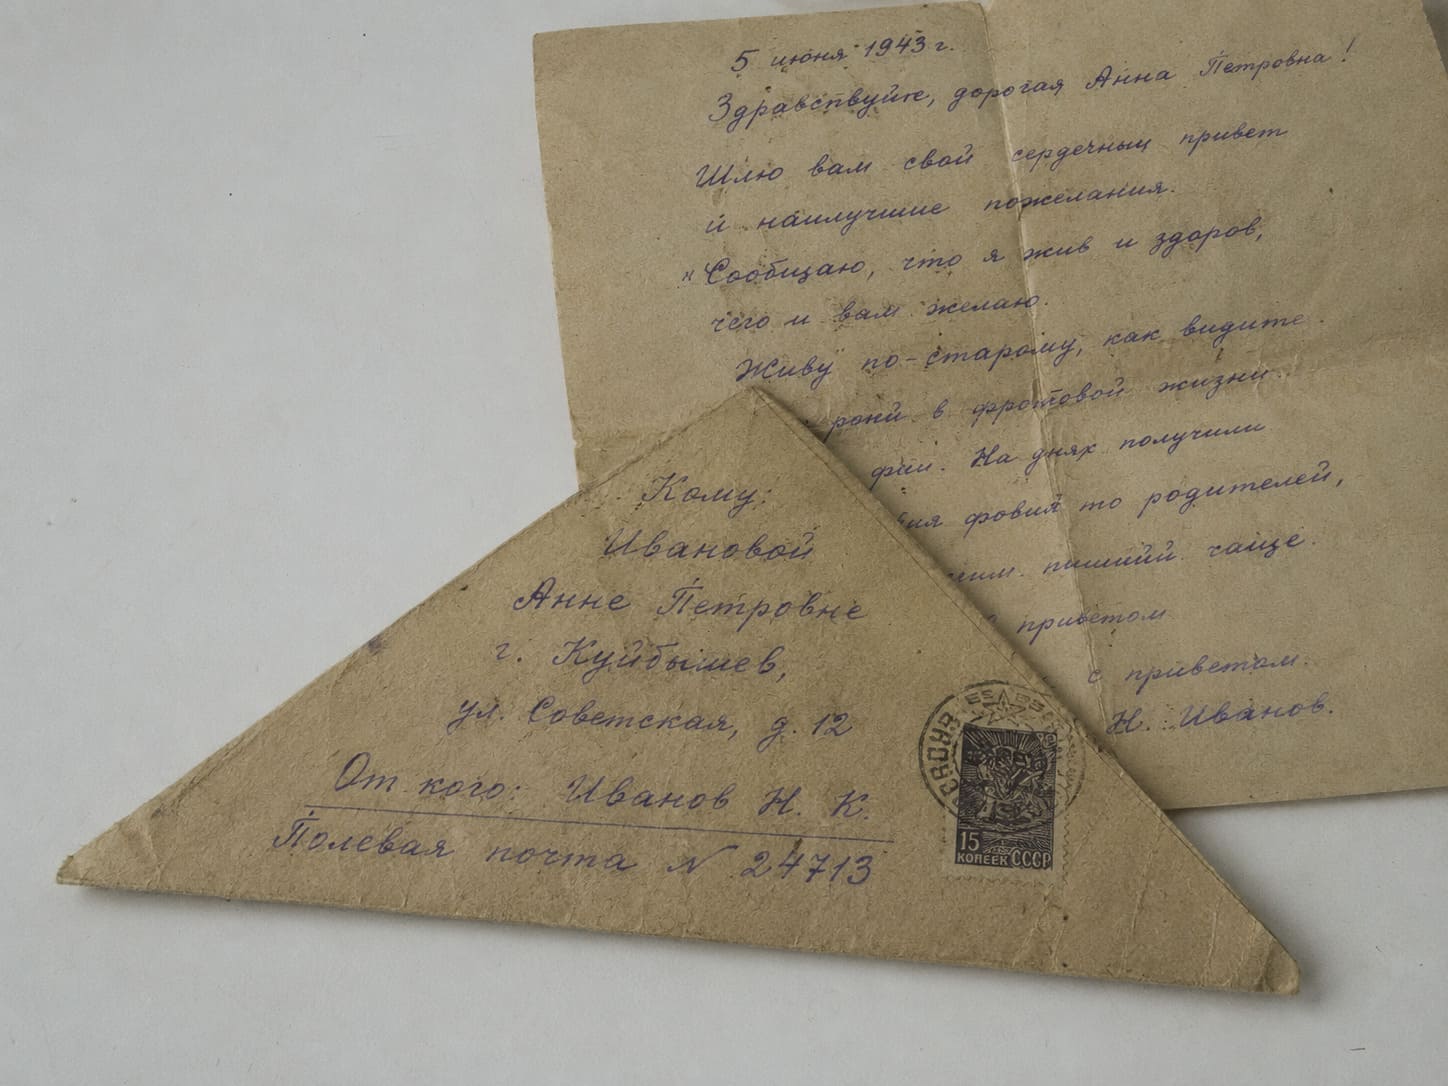 5 июня 1943 г.
Здравствуйте, дорогая Анна Петровна!
Шлю вам свой сердечныц привет
и наилучшие пожелания.
"Сообщаю, что я жив и здоров,
чего и вам желаю.
Живу по-старому, как видите.
в фротовой жизни.
На днях получили
то родителей,
чаще.
приветом
с приветом.
Н. Иванов.
Кому:
Ивановой
Анне Петровне
г. Куйбышев,
ул. Советская, д. 12
От кого: Иванов Н. К.
Полевая почта N 24713
15
КОПЕЕК СССР